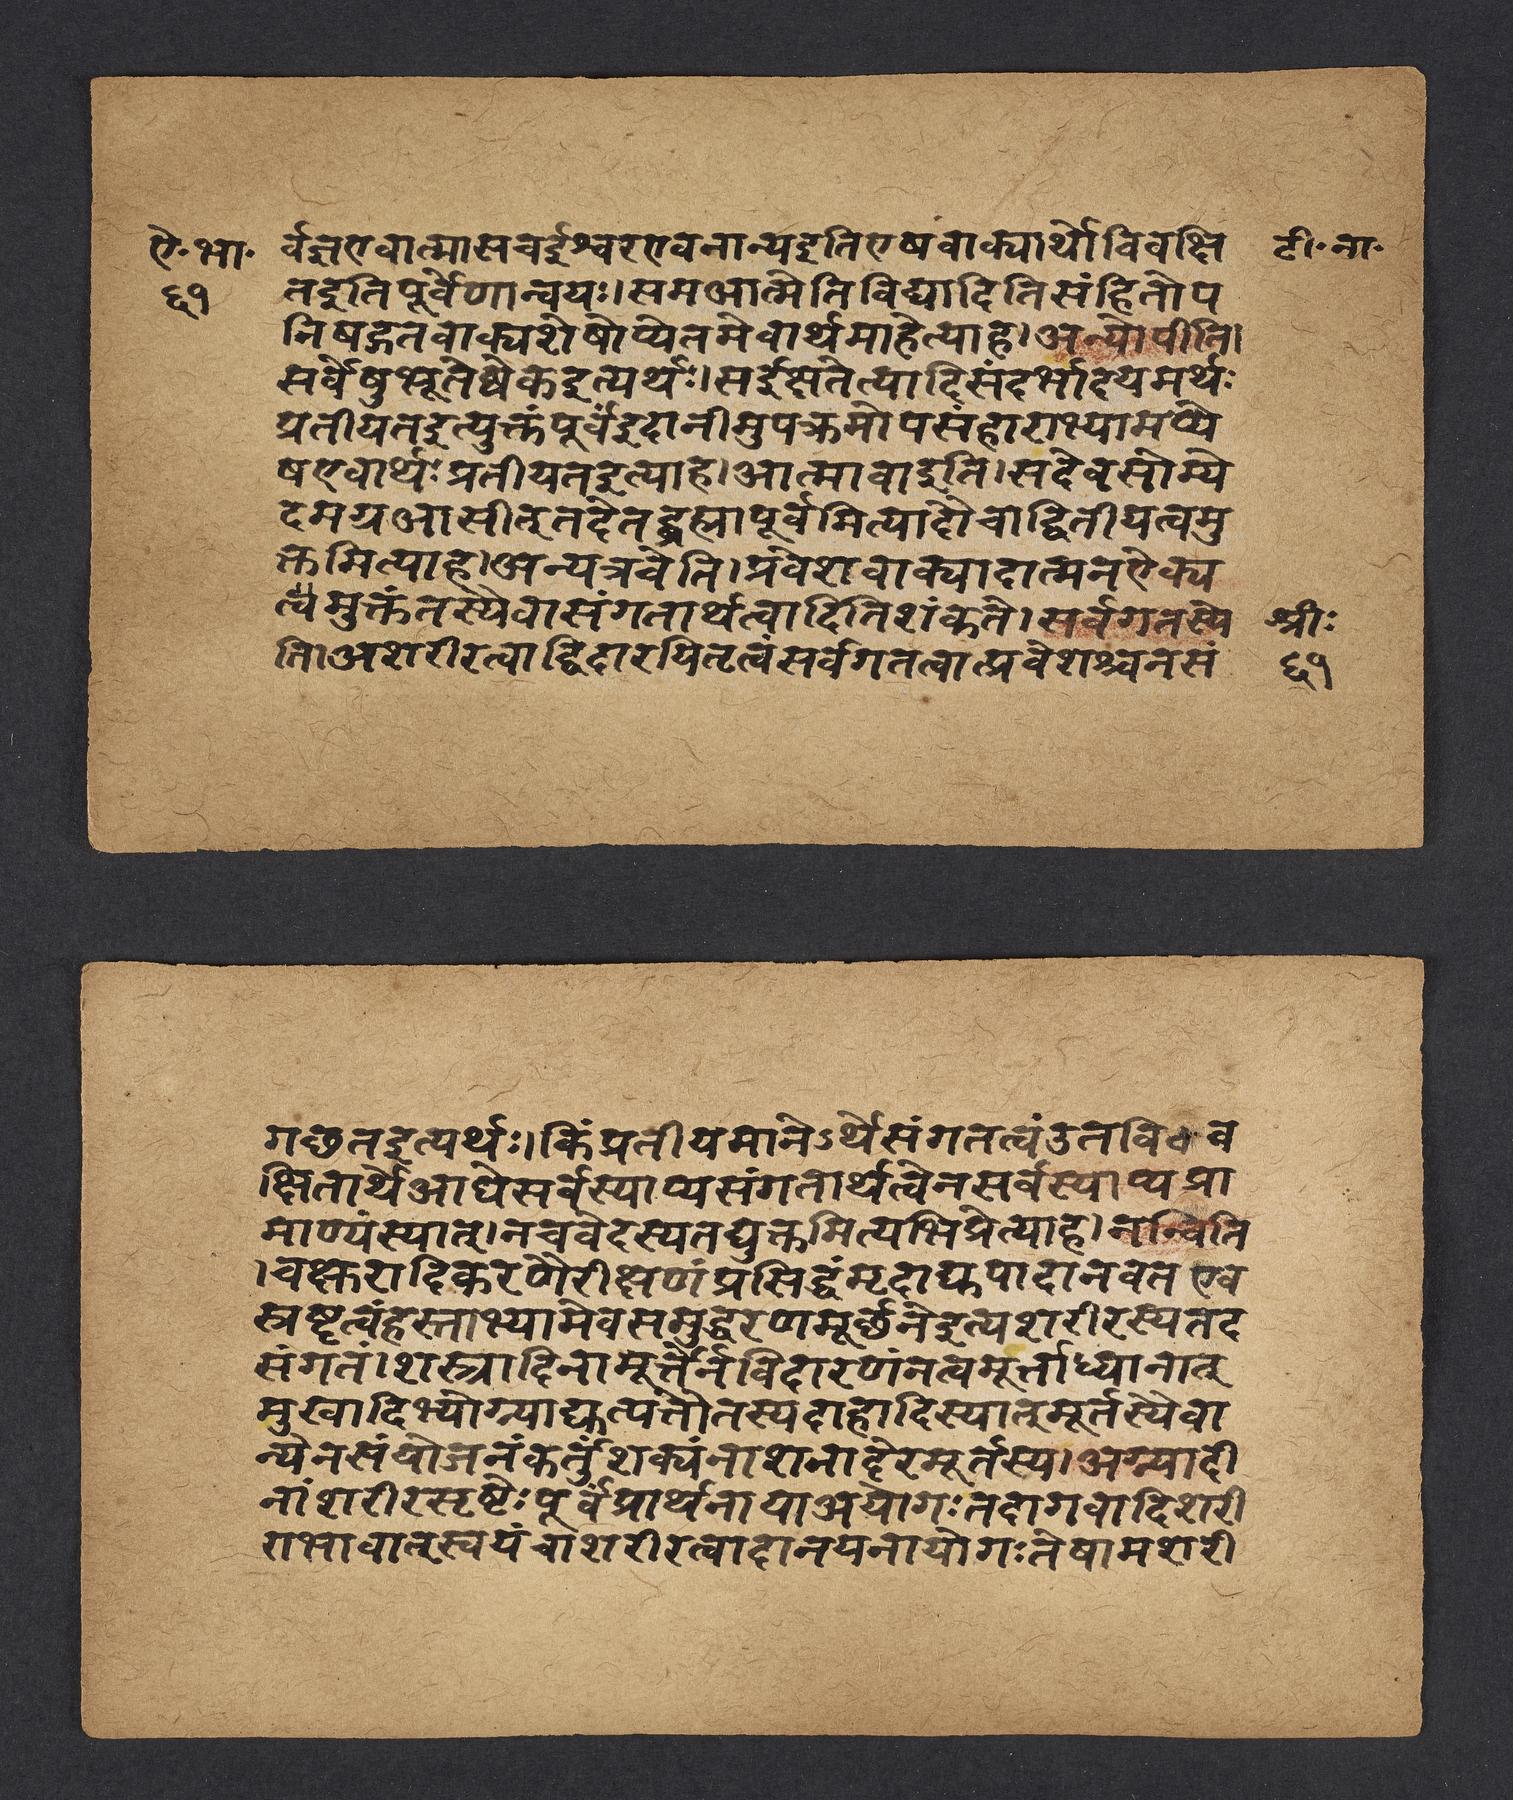 ऐ॰भा॰ र्वज्ञएवात्मासचईश्वरएवनान्यइतिएषवाक्यार्थोविवक्षि टी॰ना॰
६१ तइतिपूर्वेणान्वयः।समआत्मेतिविद्यादितिसंहितोप
निषद्गतवाक्यशेषोप्येतमेवार्थमाहेत्याह।अन्योपीति।
सर्वेषुभूतेष्वेकइत्यर्थः।सईक्षतेत्यादिसंदर्भादयमर्थः
प्रतीयतइत्युक्तंपूर्वंइदानीमुपक्रमोपसंहाराभ्यामप्ये
षएवार्थःप्रतीयतइत्याह।आत्मावाइति।सदेवसोम्ये
दमग्रआसीत्तदैतद्ब्रह्मापूर्वमित्यादौचाद्वितीयत्वमु
क्तमित्याह।अन्यत्रवेति।प्रवेशवाक्यादात्मनऐक्य
त्वमुक्तंतस्यैवासंगतार्थत्वादितिशंकते।सर्वगतस्ये श्रीः
ति।अशरीरत्वाद्विदारयितृत्वंसर्वगतत्वात्प्रवेशश्चनसं ६१
गच्छतइत्यर्थः।किंप्रतीयमानेऽर्थेसंगतत्वंउतविव
क्षितार्थेआद्येसर्वस्याप्यसंगतार्थत्वेनसर्वस्याप्यप्रा
माण्यंस्यात्।नचवेदस्यतद्युक्तमित्यभिप्रेत्याह।नन्विति
।चक्षुरादिकरणैरीक्षणंप्रसिद्धंमृदाद्युपादानवतएव
स्रष्टृत्वंहस्ताभ्यामेवसमुद्धरणमूर्छनेइत्यशरीरस्यतद
संगतं।शस्त्रादिनामूर्तेर्नविदारणंनत्वमूर्ताध्यानात्
मुखादिभ्योग्न्याद्युत्पत्तौतस्यदाहादिस्यात्मूर्तस्यैवा
न्येनसंयोजनंकर्तुंशक्यंनाशनादेरमूर्तस्य।अग्न्यादी
नांशरीरसृष्टेःपूर्वंप्रार्थनायाअयोगःतदागवादिशरी
राभावात्स्वयंचाशरीरत्वादानयनायोगःतेषामशरी